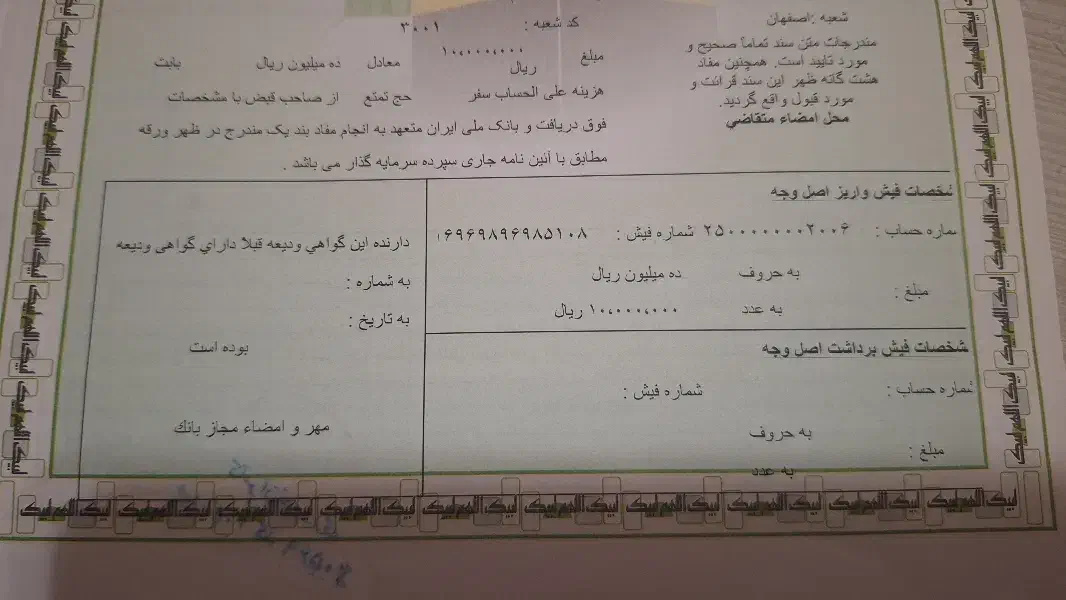 شعبه :اصفهان
مندرجات متن سند تماماً صحیح و
مورد تایید است. همچنین مفاد
هشت گانه ظهر این سند قرائت و
مورد قبول واقع گردید.
محل امضاء متقاضي
کد شعبه : ۳۰۰۱
مبلغ ۱۰,۰۰۰,۰۰۰ ریال معادل ده میلیون ریال بابت
هزینه علی الحساب سفر حج تمتع از صاحب قبض با مشخصات
فوق دریافت و بانک ملی ایران متعهد به انجام مفاد بند یک مندرج در ظهر ورقه
مطابق با آئین نامه جاری سپرده سرمایه گذار می باشد .
شخصات فیش واریز اصل وجه
ماره حساب : ۲۵۰۰۰۰۰۰۰۲۰۰۶ شماره فیش : ۱۶۹۶۹۸۹۶۹۸۵۱۰۸
مبلغ :
به حروف ده میلیون ریال
به عدد ۱۰,۰۰۰,۰۰۰ ریال
شخصات فیش برداشت اصل وجه
شماره حساب : شماره فیش :
مبلغ :
به حروف
به عدد
دارنده این گواهي ودیعه قبلا داراي گواهی ودیعه
به شماره :
به تاریخ :
بوده است
مهر و امضاء مجاز بانك
لبیک اللهم لبیک